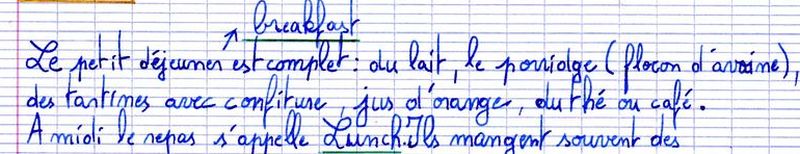 breakfast
Le petit déjeuner est complet : du lait, le porridge (flocon d'avoine),
des tartines avec confiture, jus d'orange, du thé ou café.
A midi le repas s'appelle Lunch. Ils mangent souvent des